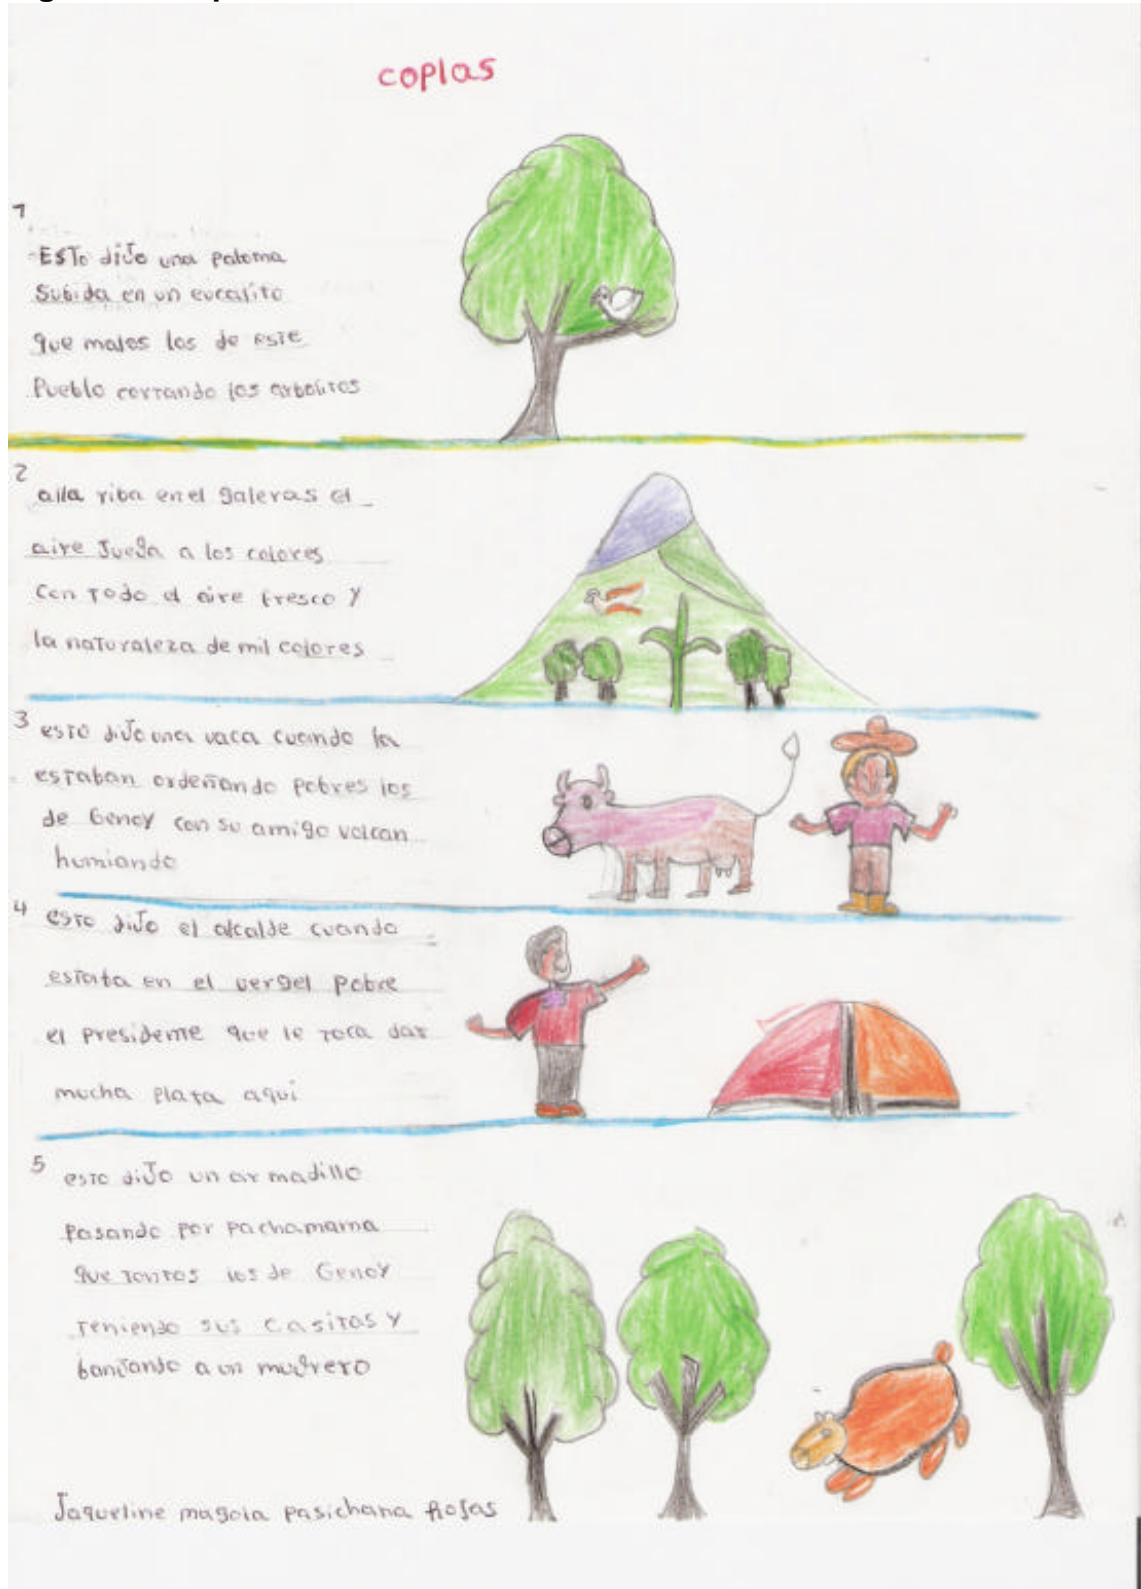 coplas
1
Esto dijo una paloma
Subida en un eucalito
que malos los de este
Pueblo cortando los arbolitos
2
alla riba en el galeras el
aire Juega a los colores
Con todo el aire fresco y
la naturaleza de mil colores
3
esto dijo una vaca cuando la
estaban ordeñando pobres los
de Genoy con su amigo volcan
humiando
4
esto dijo el alcalde cuando
estata en el vergel pobre
el presidente que le toca dar
mucha plata aqui
5
esto dijo un armadillo
pasando por pachamama
que tontos los de Genoy
teniendo sus casitas y
banjando a un
Jaqueline magola pasichana Rojas